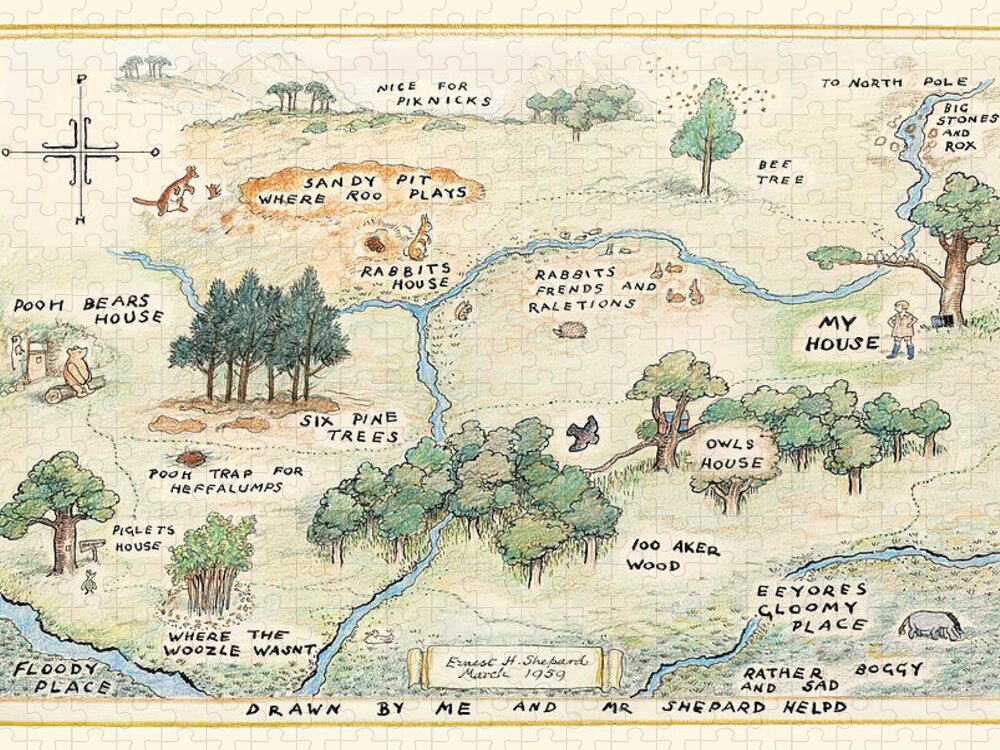 P
O
O
H
NICE FOR
PIKNICKS
TO NORTH POLE
BIG
STONES
AND
ROX
BEE
TREE
SANDY PIT
WHERE ROO PLAYS
RABBITS
HOUSE
RABBITS
FRENDS AND
RALETIONS
POOH BEARS
HOUSE
MY
HOUSE
SIX PINE
TREES
OWLS
HOUSE
POOH TRAP FOR
HEFFALUMPS
PIGLETS
HOUSE
100 AKER
WOOD
EEYORES
GLOOMY
PLACE
WHERE THE
WOOZLE WASNT
FLOODY
PLACE
Ernest H. Shepard
March 1959
RATHER BOGGY
AND SAD
DRAWN BY ME AND MR SHEPARD HELPD